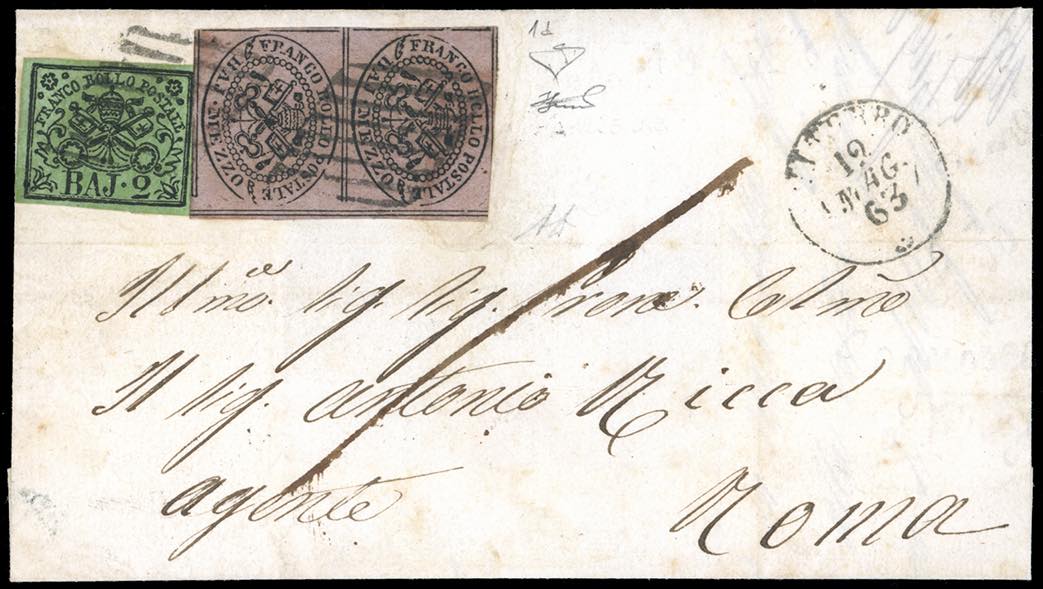 FRANCO BOLLO POSTALE
BAJ·2
FRANCO BOLLO POSTALE
MEZZO BAJ
FRANCO BOLLO POSTALE
MEZZO BAJ
1d
VITERBO
12
MAG
63
Illmo. Sig. Sig. Prone. Colmo
Il Sig. Antonio Ricca
agente
Roma